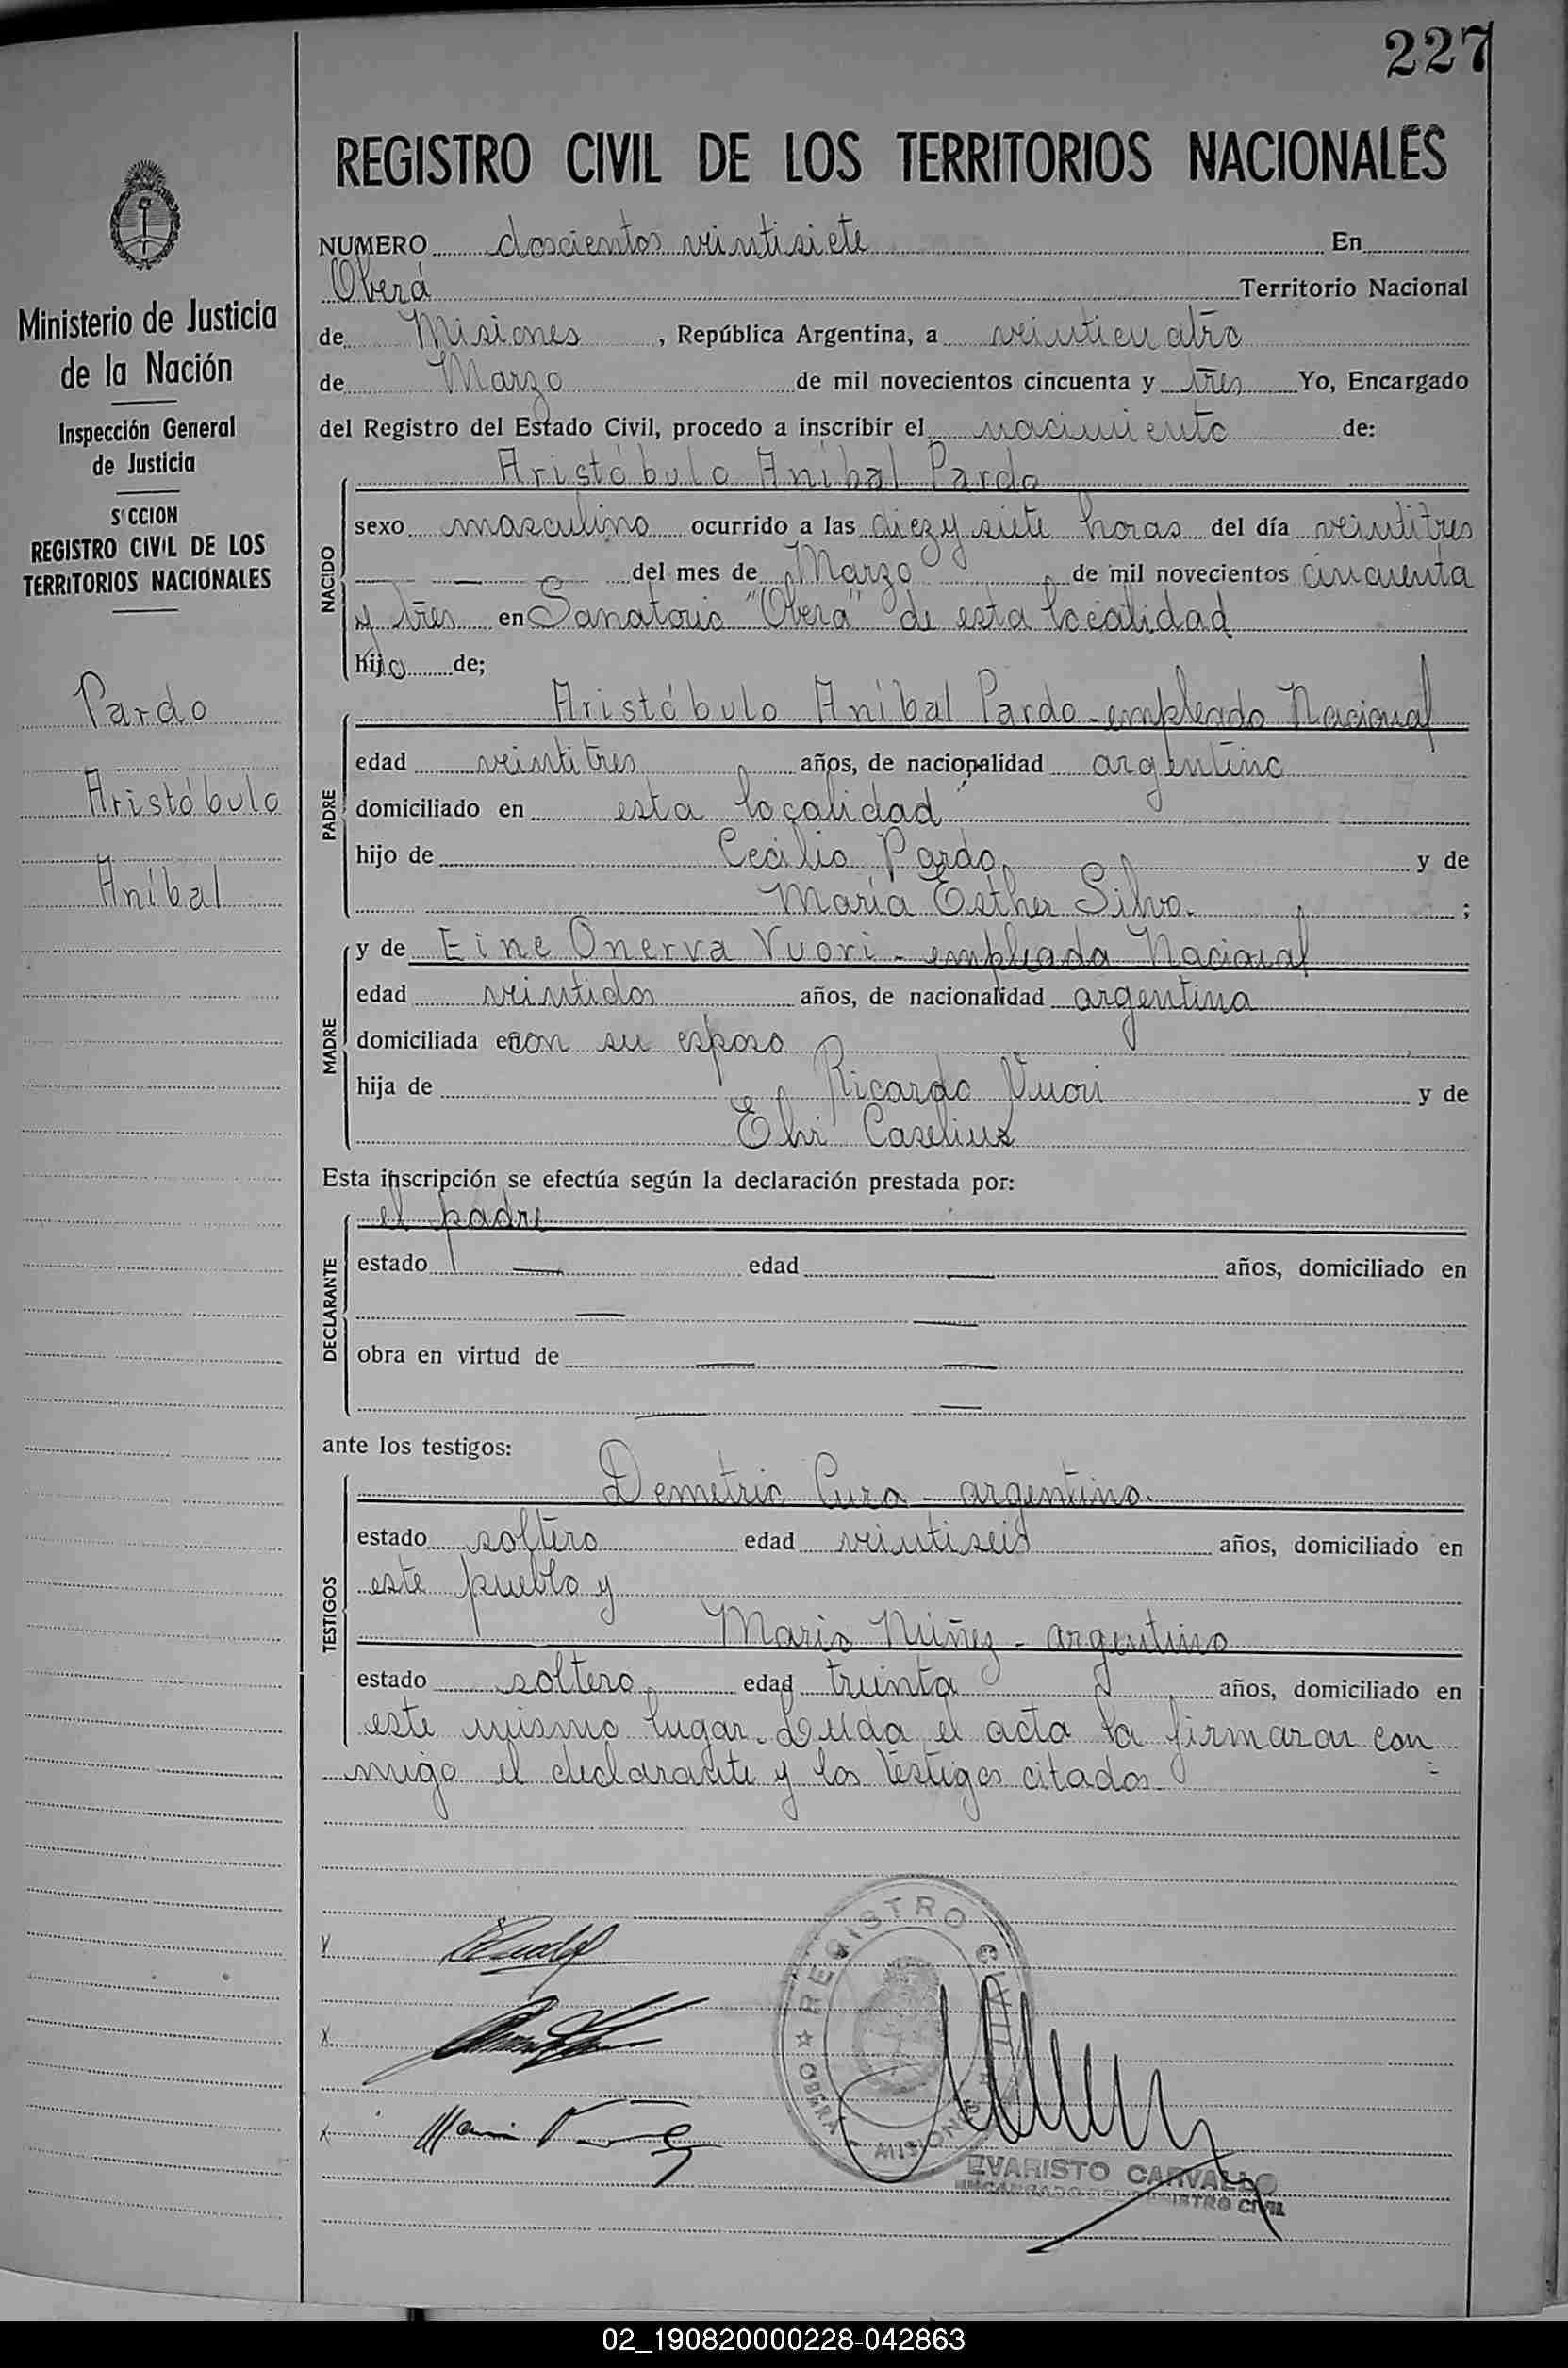 227
REGISTRO CIVIL DE LOS TERRITORIOS NACIONALES
Ministerio de Justicia
de la Nación
Inspección General
de Justicia
S'CCION
REGISTRO CIVIL DE LOS
TERRITORIOS NACIONALES
Pardo
Aristóbulo
Aníbal
NUMERO doscientos veintisiete En
Oberá Territorio Nacional
de Misiones, República Argentina, a veinticuatro
de Marzo de mil novecientos cincuenta y tres Yo, Encargado
del Registro del Estado Civil, procedo a inscribir el nacimiento de:
NACIDO
Aristóbulo Aníbal Pardo
sexo masculino ocurrido a las diez y siete horas del día veintitres
del mes de Marzo de mil novecientos cincuenta
y tres en Sanatorio "Oberá" de esta localidad
hijo de;
PADRE
Aristóbulo Aníbal Pardo - empleado Nacional
edad veintitres años, de nacionalidad argentino
domiciliado en esta localidad
hijo de Cecilio Pardo y de
María Esther Silva. ;
MADRE
y de Eine Onerva Vuori - empleada Nacional
edad veintidos años, de nacionalidad argentina
domiciliada en con su esposo
hija de Ricardo Vuori y de
Caselius
Esta inscripción se efectúa según la declaración prestada por:
DECLARANTE
el padre
estado — edad — años, domiciliado en
— —
obra en virtud de — —
— —
ante los testigos:
TESTIGOS
Demetrio Cura - argentino.
estado soltero edad veintiseis años, domiciliado en
este pueblo y
Mario Núñez - argentino
estado soltero edad treinta años, domiciliado en
este mismo lugar. Leída el acta la firmaran con
migo el declarante y los testigos citados -
REGISTRO CIVIL
OBERÁ MISIONES
EVARISTO CARVALLO
ENCARGADO DEL REGISTRO CIVIL
02_190820000228-042863